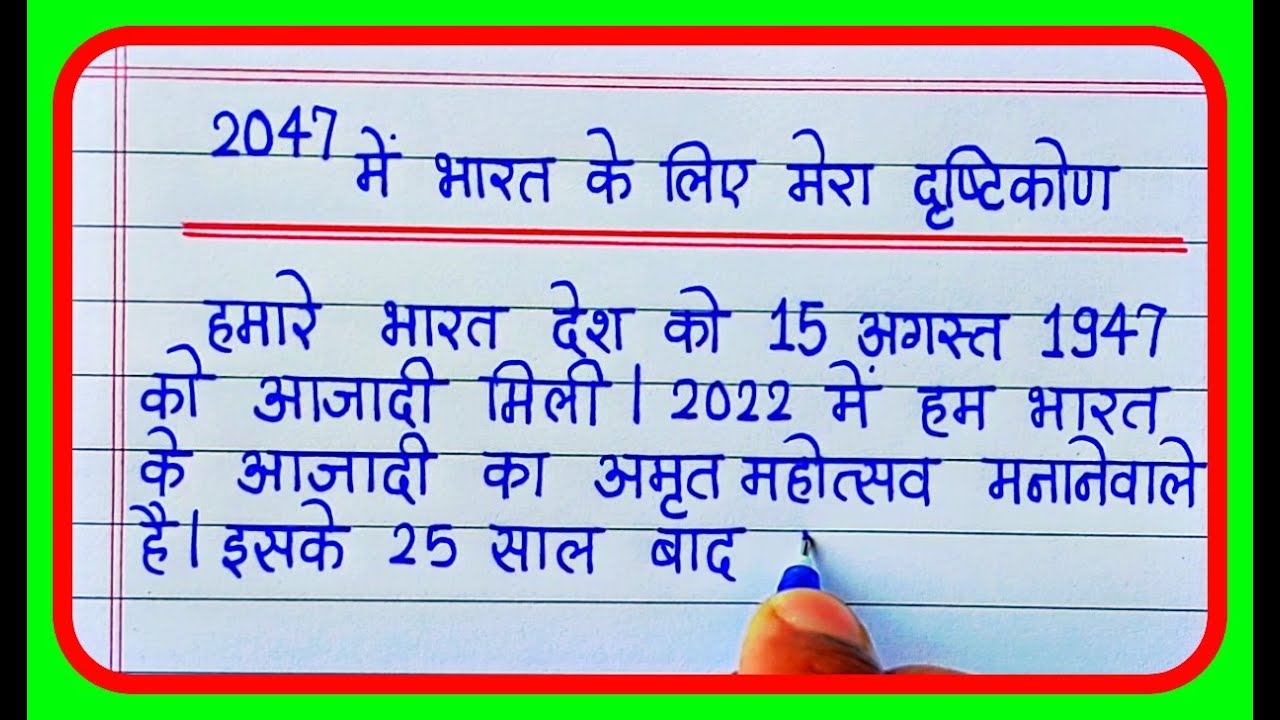 2047 में भारत के लिए मेरा दृष्टिकोण
हमारे भारत देश को 15 अगस्त 1947
को आजादी मिली । 2022 में हम भारत
के आजादी का अमृत महोत्सव मनानेवाले
है । इसके 25 साल बाद